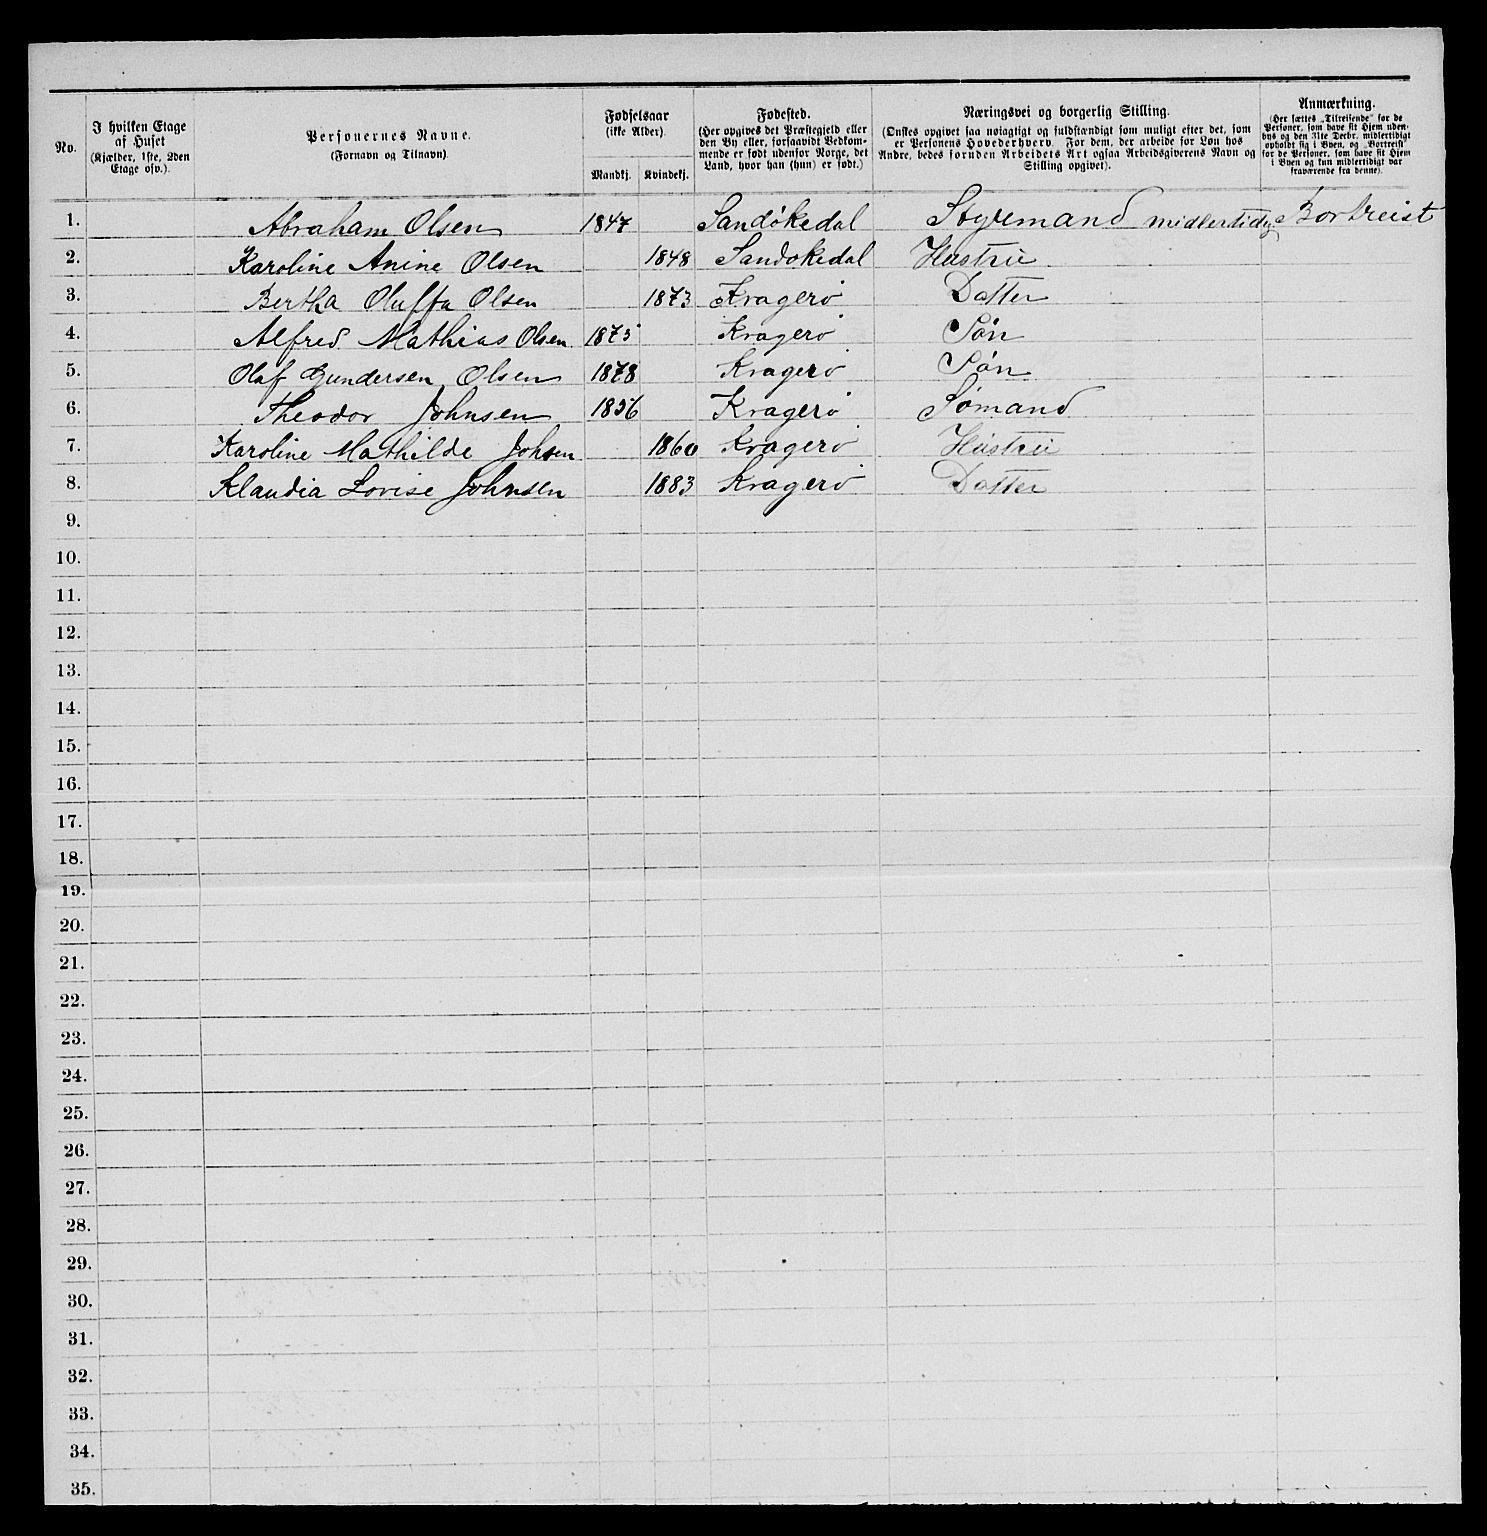 No.
I hvilken Etage af Huset (Kjælder, 1ste, 2den Etage osv.).
Personernes Navne. (Fornavn og Tilnavn)
Fødselsaar (ikke Alder). Mandkj. Kvindekj.
Fødested. (Her opgives det Præstegjeld eller den By eller, forsaavidt Vedkommende er født udenfor Norge, det Land, hvor han (hun) er født.)
Næringsvei og borgerlig Stilling. (Ønskes opgivet saa nøiagtigt og fuldstændigt som muligt efter det, som er Personens Hovederhverv. For dem, der arbeide for Løn hos Andre, bedes foruden Arbeidets Art ogsaa Arbeidsgiverens Navn og Stilling opgivet).
Anmærkning. (Her sættes „Tilreisende“ for de Personer, som have sit Hjem udenbys og den 31te Decbr. midlertidigt opholdt sig i Byen, og „Bortreist“ for de Personer, som have sit Hjem i Byen og kun midlertidigt var fraværende fra denne).
1. Abraham Olsen 1847 Sandökedal Styremand midlertidig Bortreist
2. Karoline Anine Olsen 1848 Sandokedal Hustru
3. Bertha Oluffa Olsen 1873 Kragerö Datter
4. Alfred Mathias Olsen 1875 Kragerö Sön
5. Olaf Gundersen Olsen 1878 Kragerö Sön
6. Theodor Johnsen 1856 Kragerö Sömand
7. Karoline Mathilde Johsen 1860 Kragerö Hustru
8. Klaudia Lovise Johnsen 1883 Kragerö Datter
9.
10.
11.
12.
13.
14.
15.
16.
17.
18.
19.
20.
21.
22.
23.
24.
25.
26.
27.
28.
29.
30.
31.
32.
33.
34.
35.